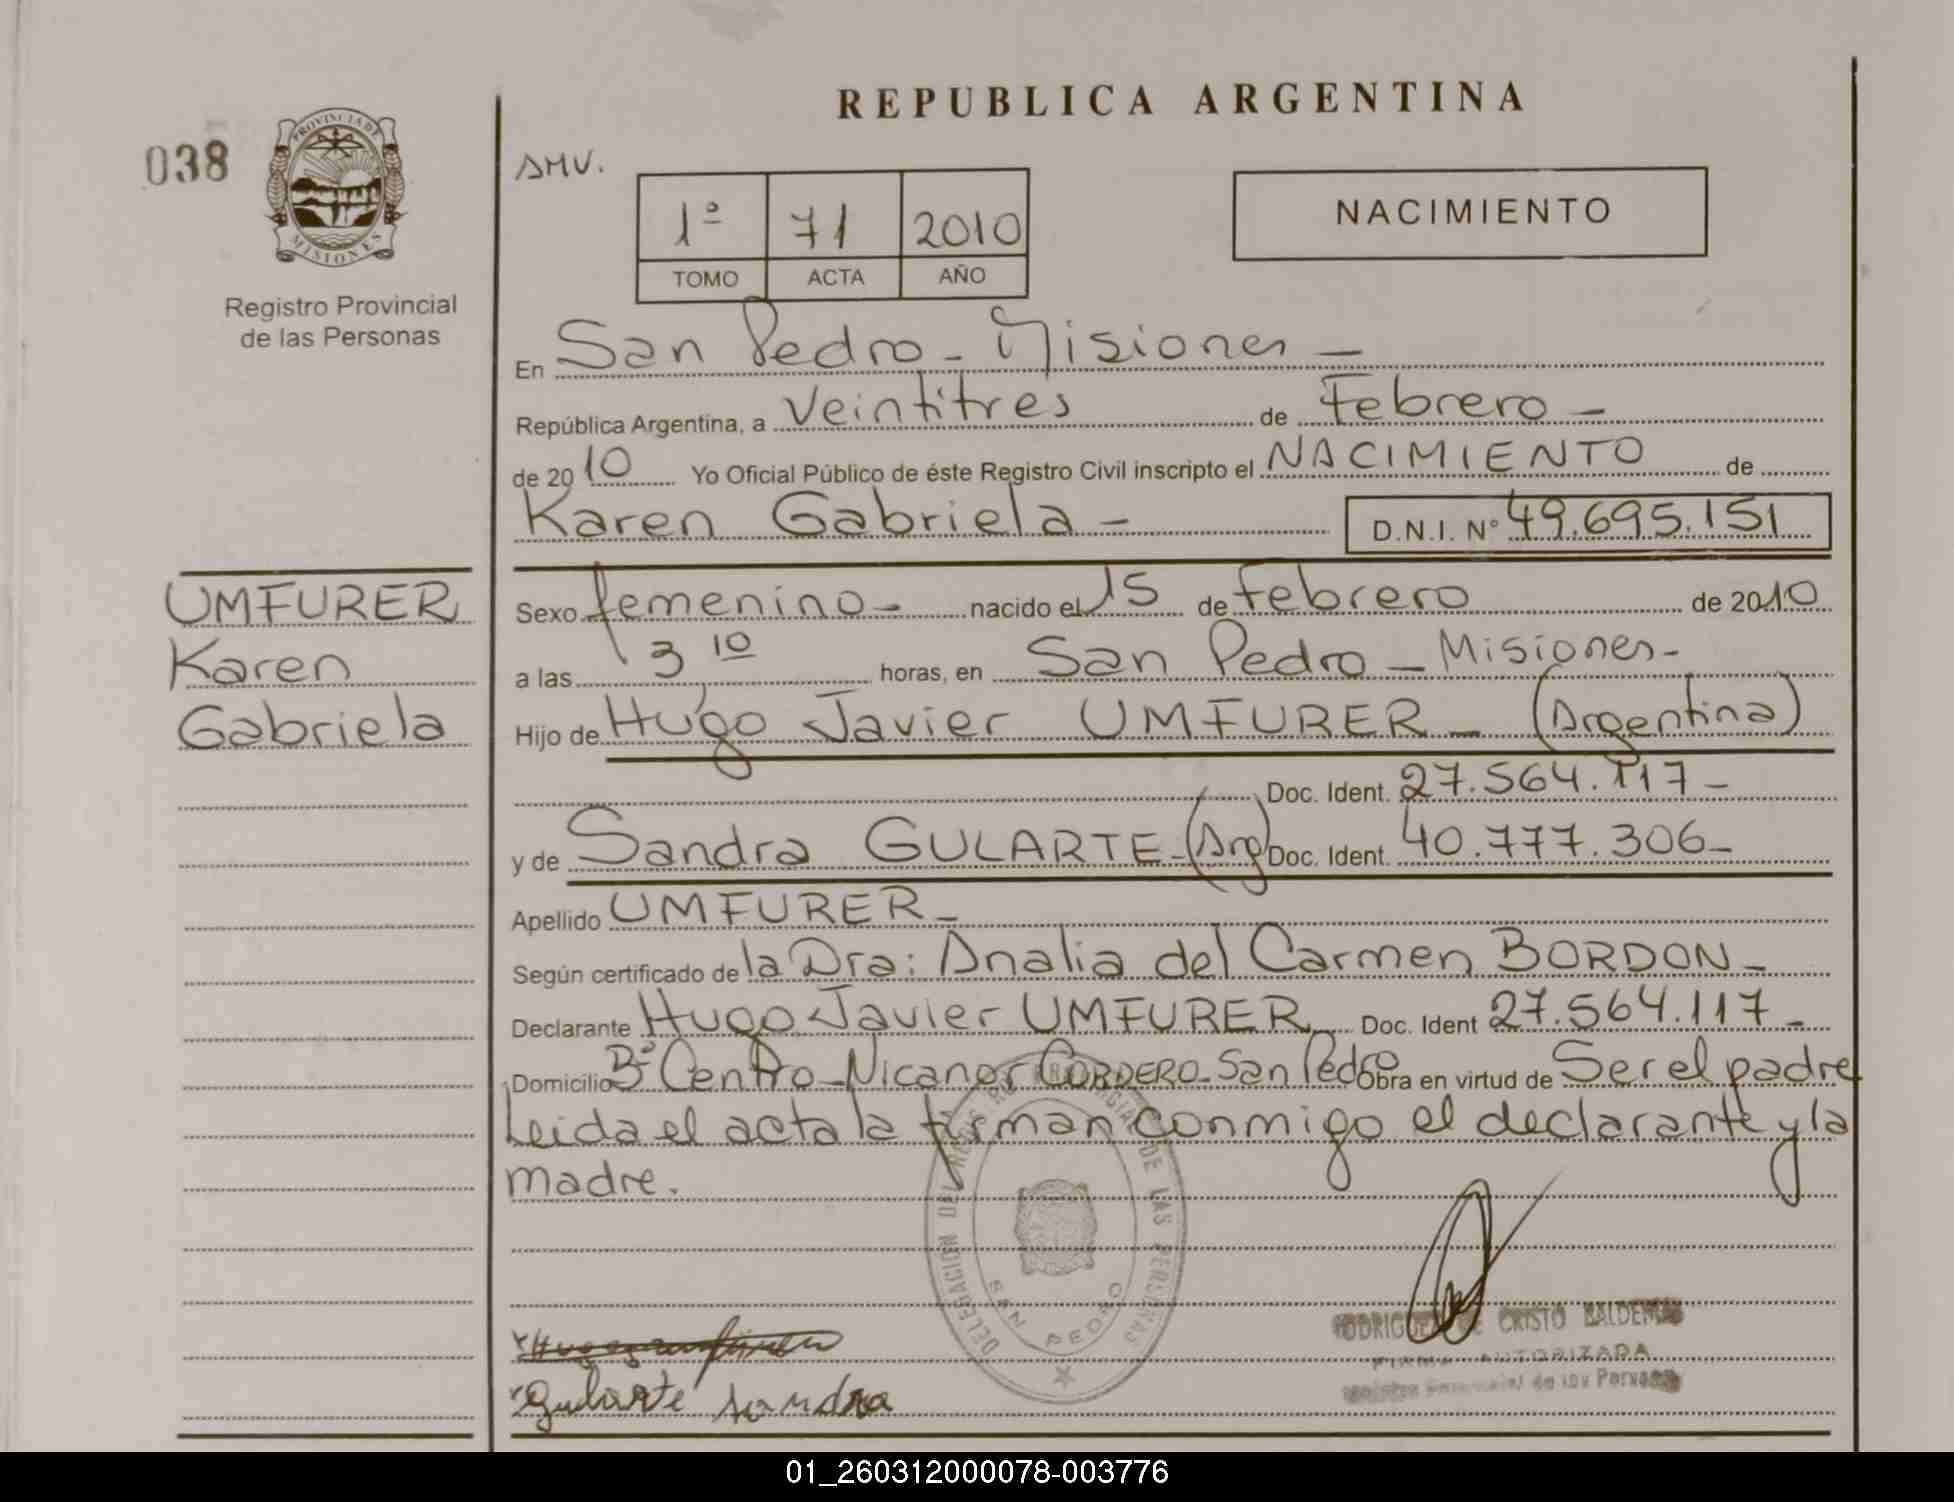 REPUBLICA ARGENTINA
038
PROVINCIA DE
MISIONES
Registro Provincial
de las Personas
SMV.
1º 71 2010
TOMO ACTA AÑO
NACIMIENTO
En San Pedro - Misiones -
República Argentina, a Veintitres de Febrero -
de 2010 Yo Oficial Público de éste Registro Civil inscripto el NACIMIENTO de
Karen Gabriela - D.N.I. Nº 49.695.151
UMFURER
Karen
Gabriela
Sexo femenino - nacido el 15 de Febrero de 2010
a las 3 10 horas, en San Pedro - Misiones -
Hijo de Hugo Javier UMFURER - (Argentina)
Doc. Ident. 27.564.117 -
y de Sandra GULARTE - (Arg) Doc. Ident. 40.777.306 -
Apellido UMFURER -
Según certificado de la Dra: Analia del Carmen BORDON -
Declarante Hugo Javier UMFURER Doc. Ident 27.564.117 -
Domicilio Bº Centro - Nicanor CORDERO - San Pedro Obra en virtud de Ser el padre
Leida el acta la firman conmigo el declarante y la
madre.
DELEGACION DEL REGISTRO PROVINCIAL DE LAS PERSONAS
SAN PEDRO
CRISTO
FIRMA AUTORIZADA
de las Personas
Gularte Sandra
01_260312000078-003776